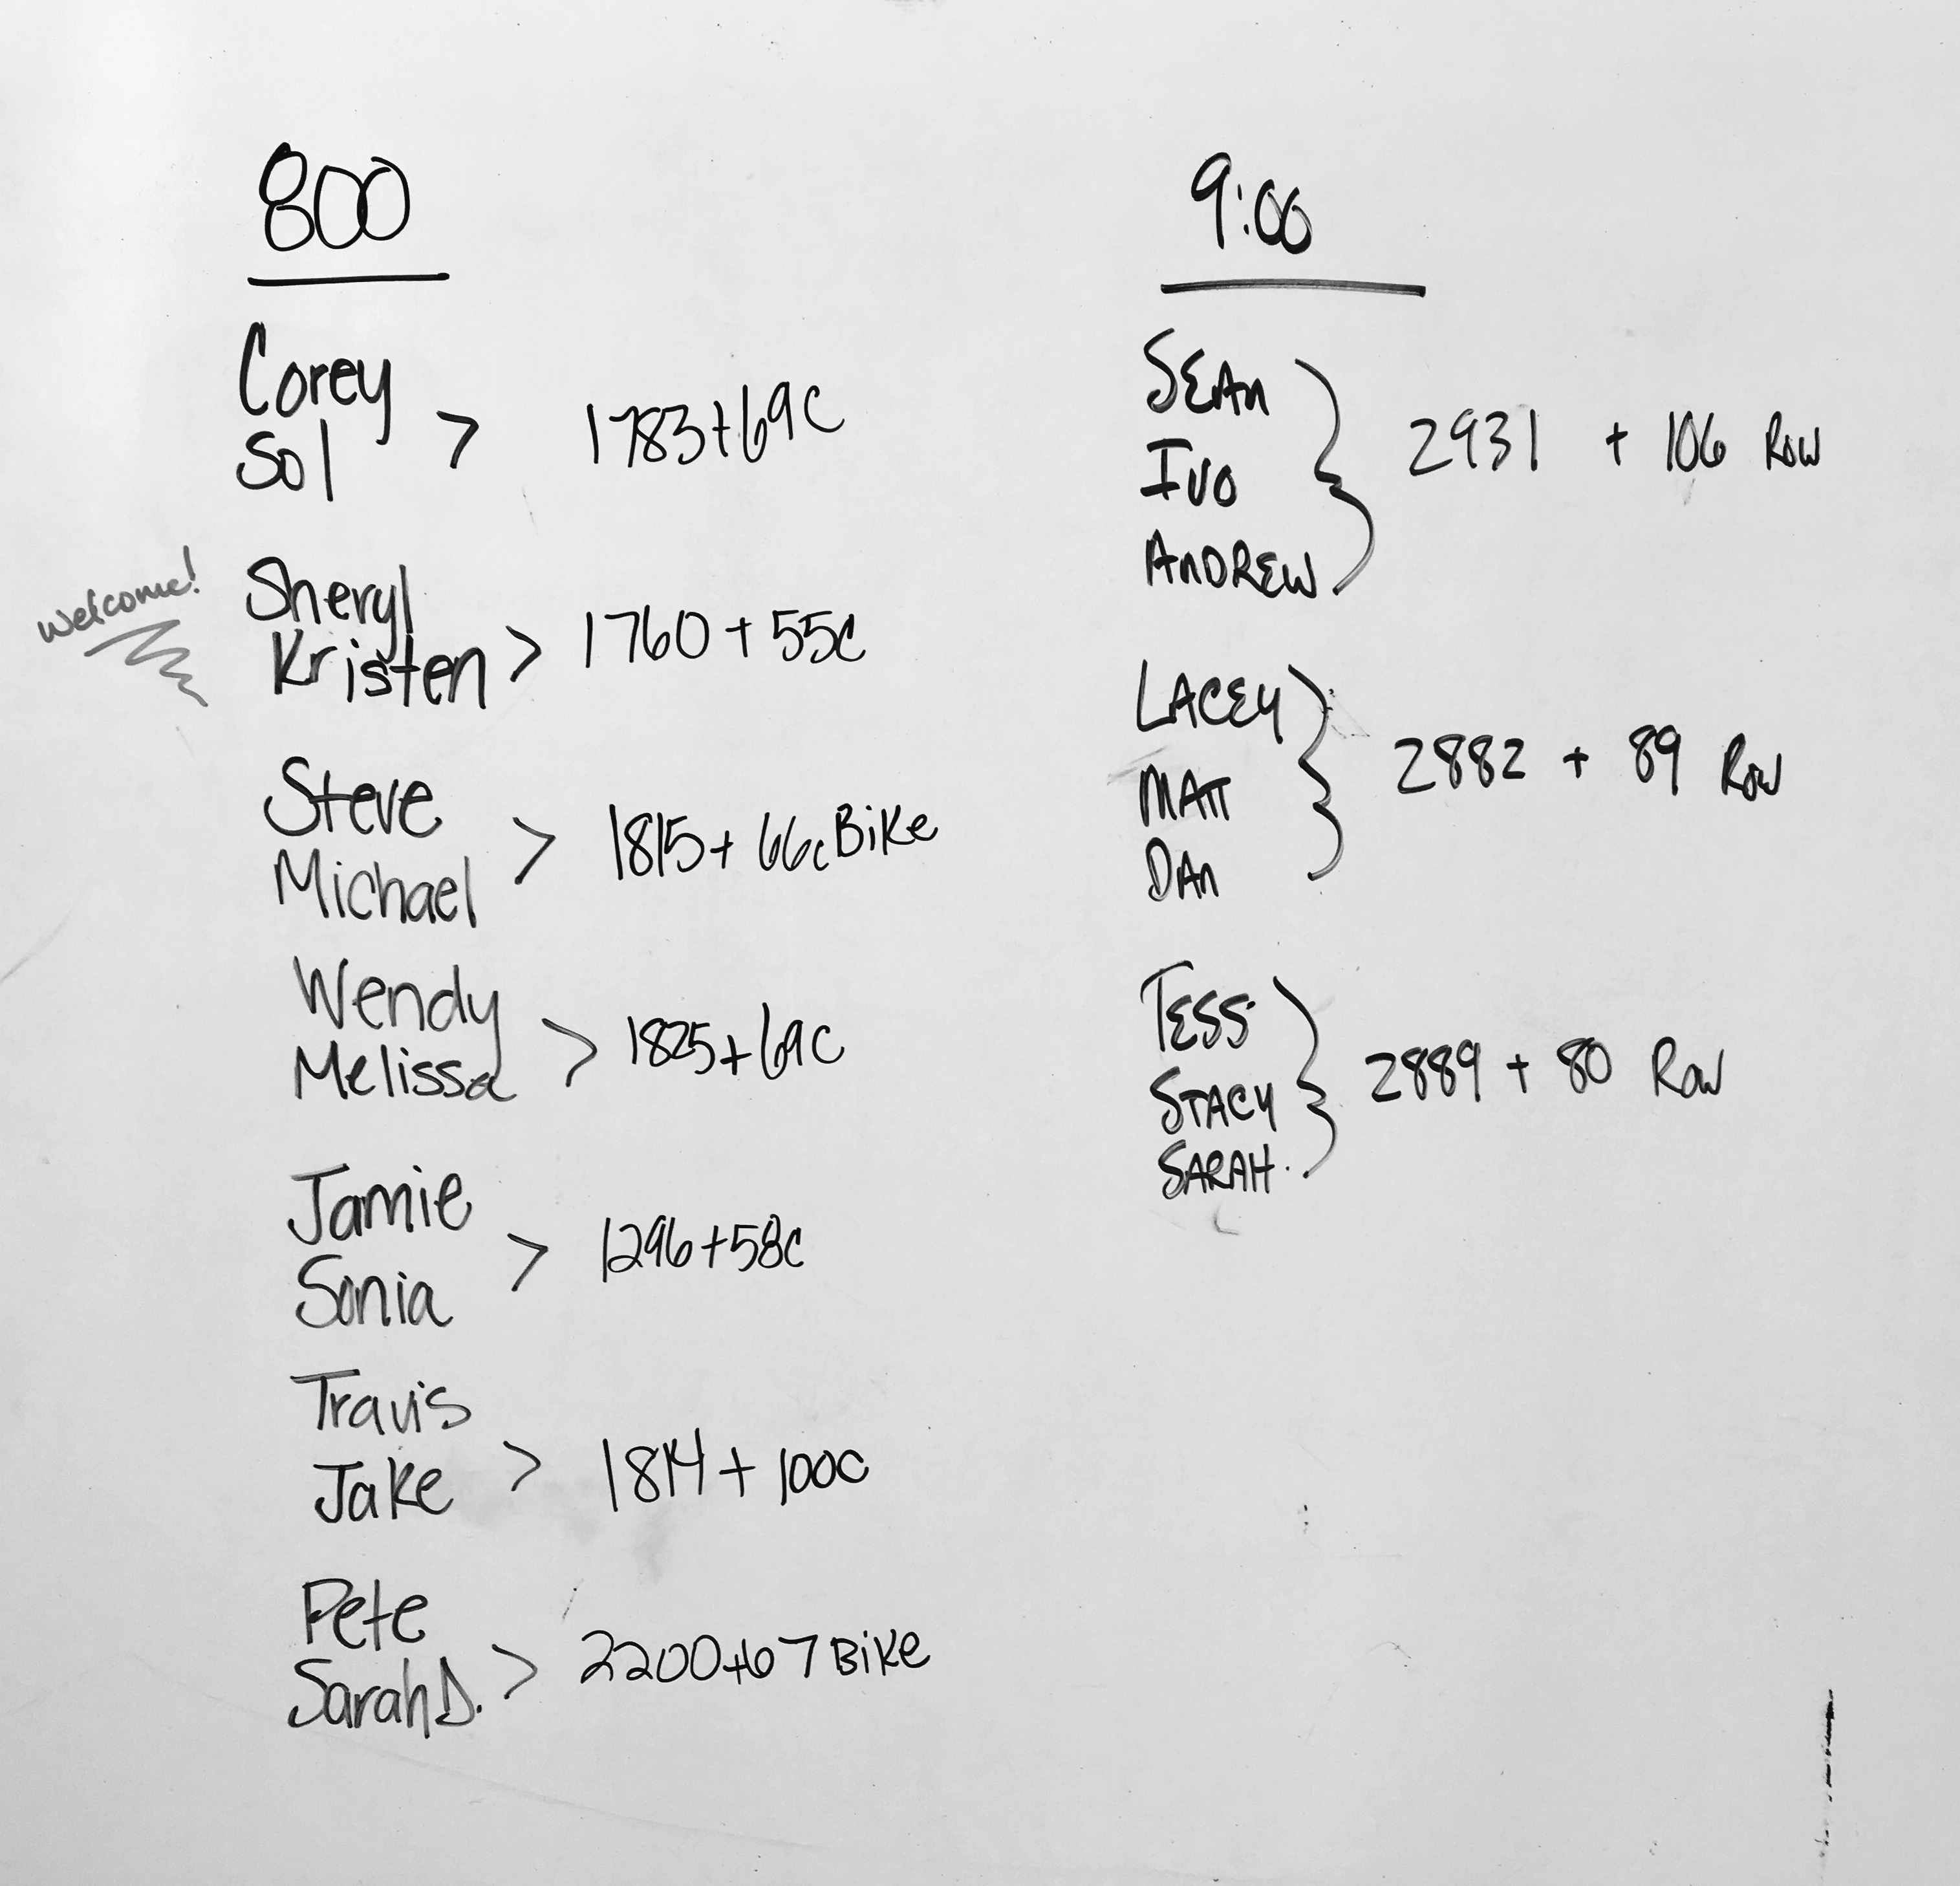 800
Corey
Sol > 1783+69c
welcome!
Sheryl
Kristen > 1760 + 55c
Steve
Michael > 1815+ 66c Bike
Wendy
Melissa > 1825+69c
Jamie
Sonia > 1296+58c
Travis
Jake > 1814+ 100c
Pete
Sarah D. > 2200+67 Bike
9:00
SEAN
IVO } 2931 + 106 Row
ANDREW
LACEY
MATT } 2882 + 89 Row
DAN
TESS
STACY } 2889 + 80 Row
SARAH